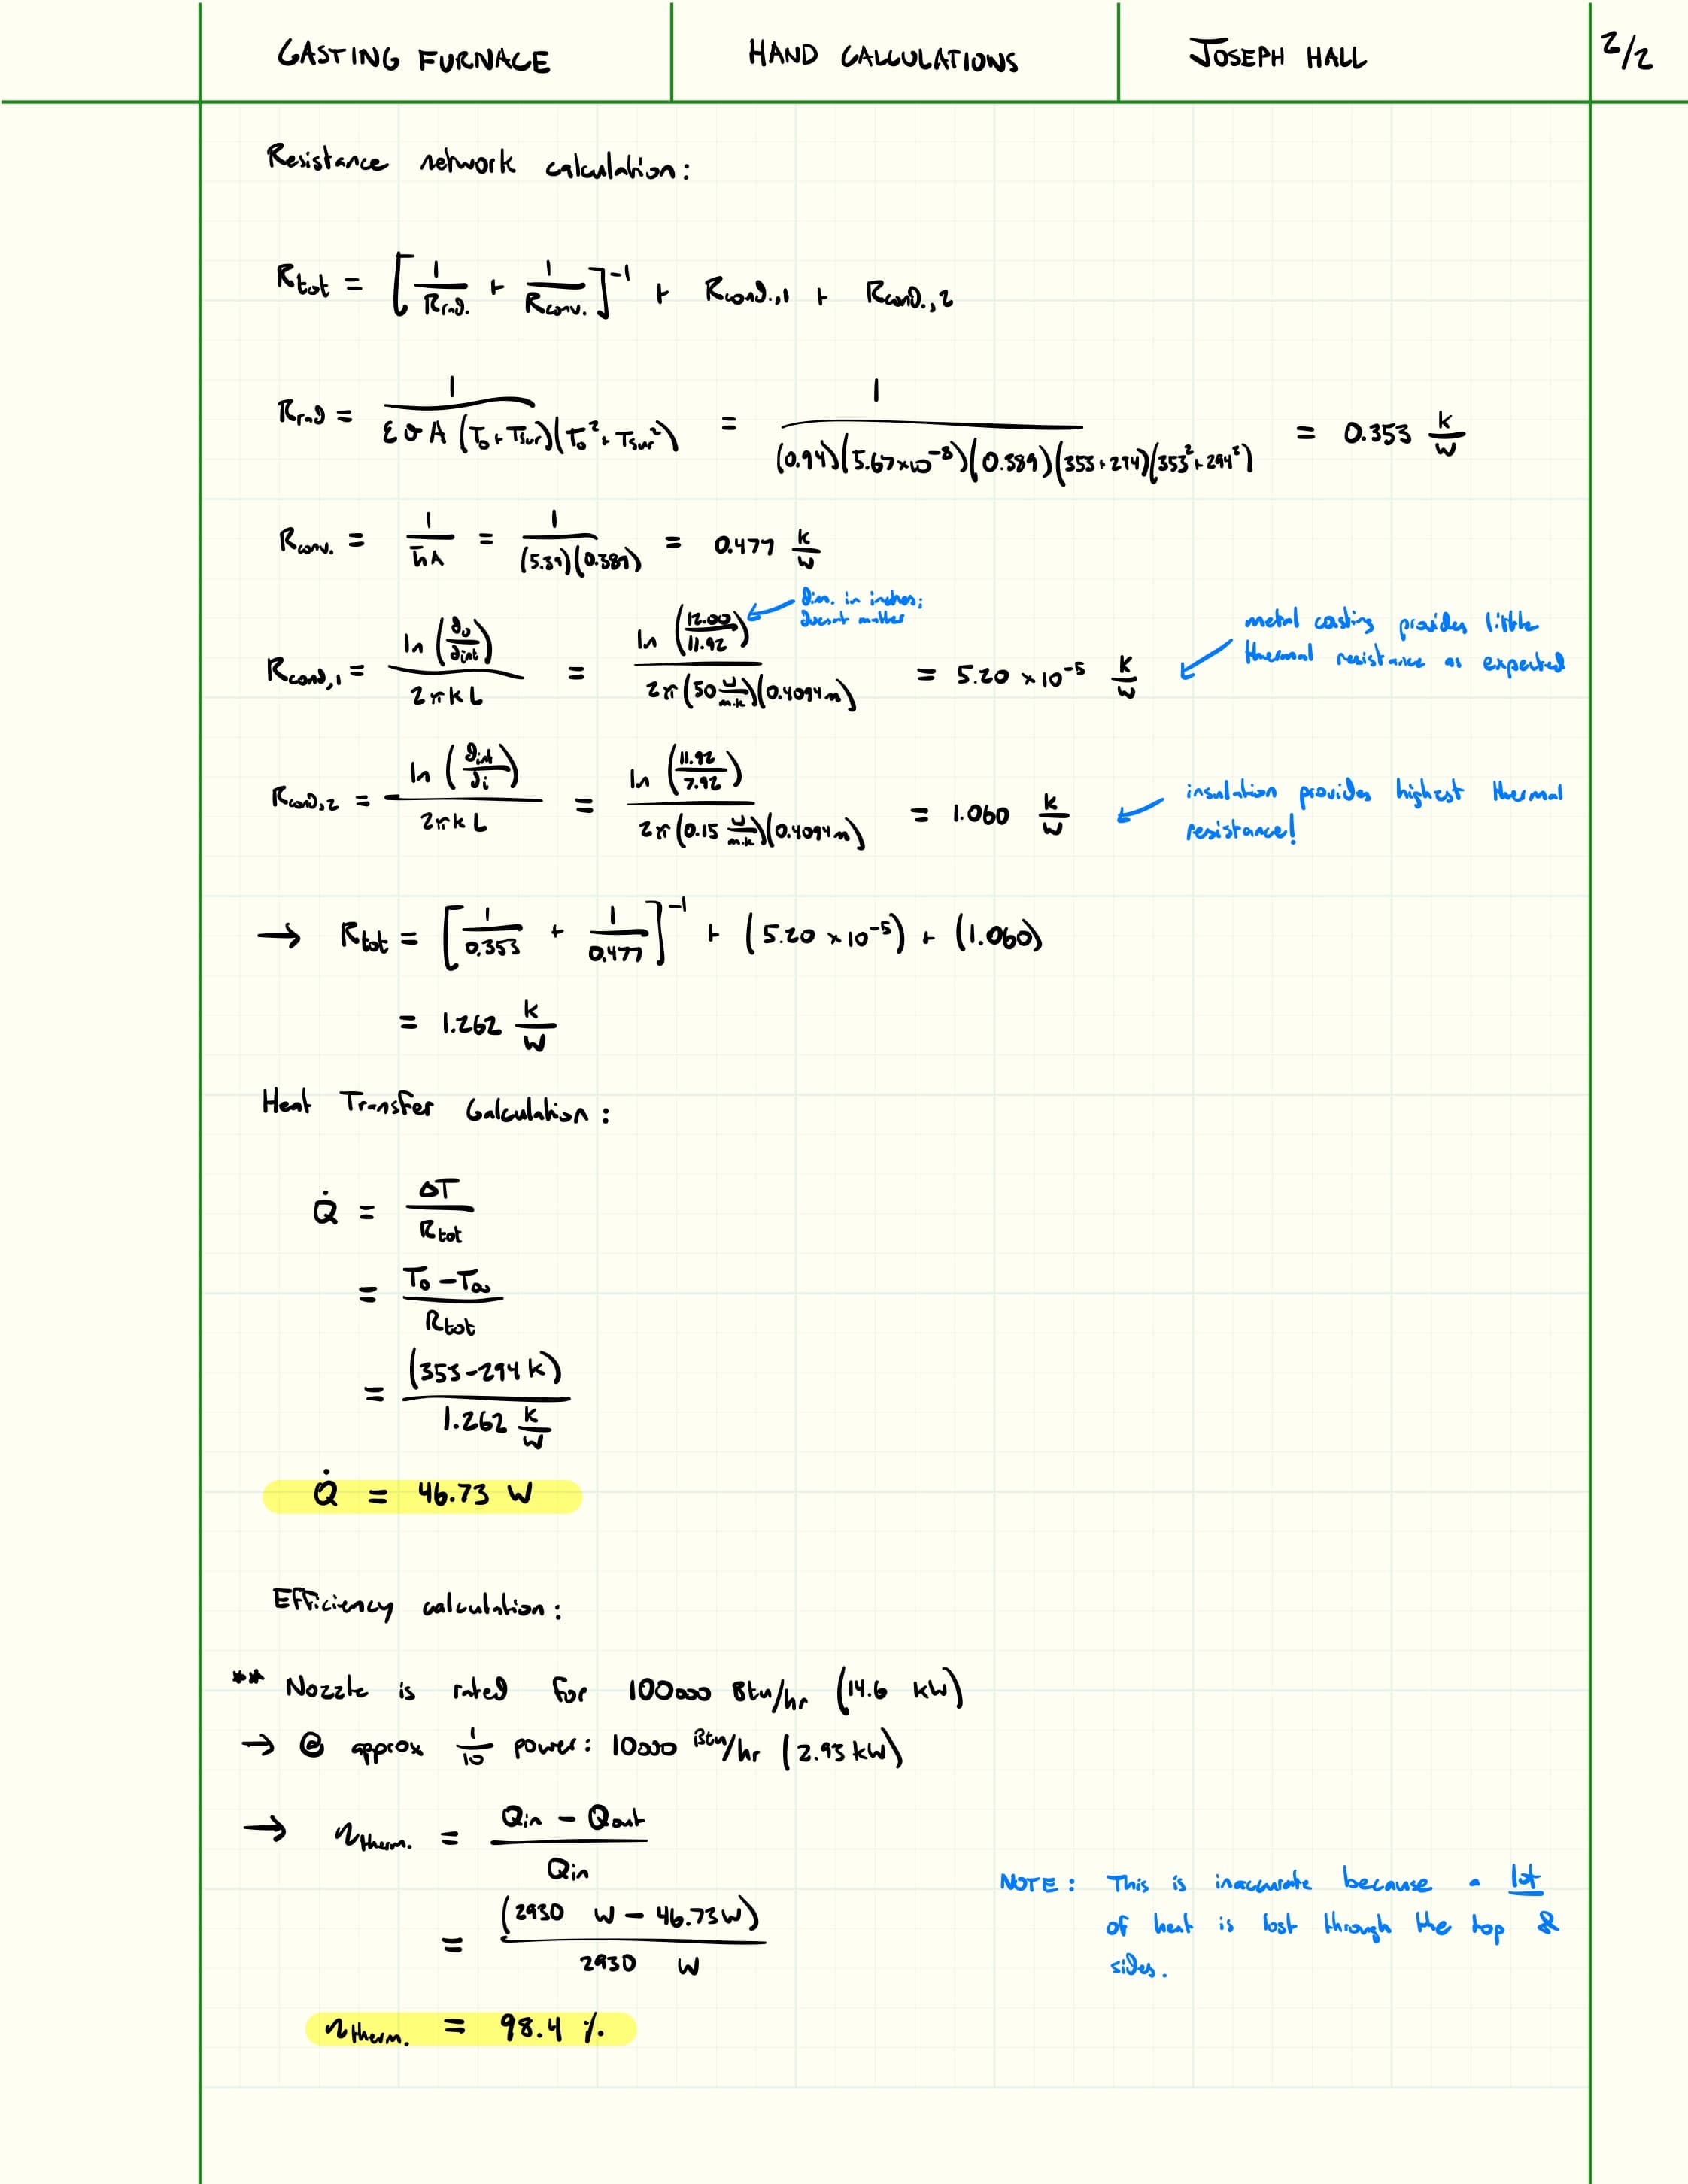 CASTING FURNACE
HAND CALCULATIONS
JOSEPH HALL
2/2
Resistance network calculation:
R_tot = [1/R_rad. + 1/R_conv.]^-1 + R_cond.,1 + R_cond.,2
R_rad = 1/(εσA(T_o+T_sur)(T_o²+T_sur²)) = 1/((0.94)(5.67×10^-8)(0.389)(353+294)(353²+294²)) = 0.353 K/W
R_conv. = 1/(h̄A) = 1/((5.39)(0.389)) = 0.477 K/W
dim. in inches;
doesnt matter
R_cond,1 = ln(d_o/d_int)/(2πkL) = ln(12.00/11.92)/(2π(50 W/m.k)(0.4094m)) = 5.20 ×10^-5 K/W
metal casting provides little
thermal resistance as expected
R_cond,2 = ln(d_int/d_i)/(2πkL) = ln(11.92/7.92)/(2π(0.15 W/m.k)(0.4094m)) = 1.060 K/W
insulation provides highest thermal
resistance!
→ R_tot = [1/0.353 + 1/0.477]^-1 + (5.20 ×10^-5) + (1.060)
= 1.262 K/W
Heat Transfer Calculation:
Q̇ = ΔT/R_tot
= (T_o − T_∞)/R_tot
= (353−294 K)/(1.262 K/W)
Q̇ = 46.73 W
Efficiency calculation:
** Nozzle is rated for 100000 Btu/hr (14.6 kW)
→ @ approx 1/10 power: 10000 Btu/hr (2.93 kW)
→ η_therm. = (Qin − Qout)/Qin
= (2930 W − 46.73W)/(2930 W)
η_therm. = 98.4 %
NOTE: This is inaccurate because a lot
of heat is lost through the top &
sides.